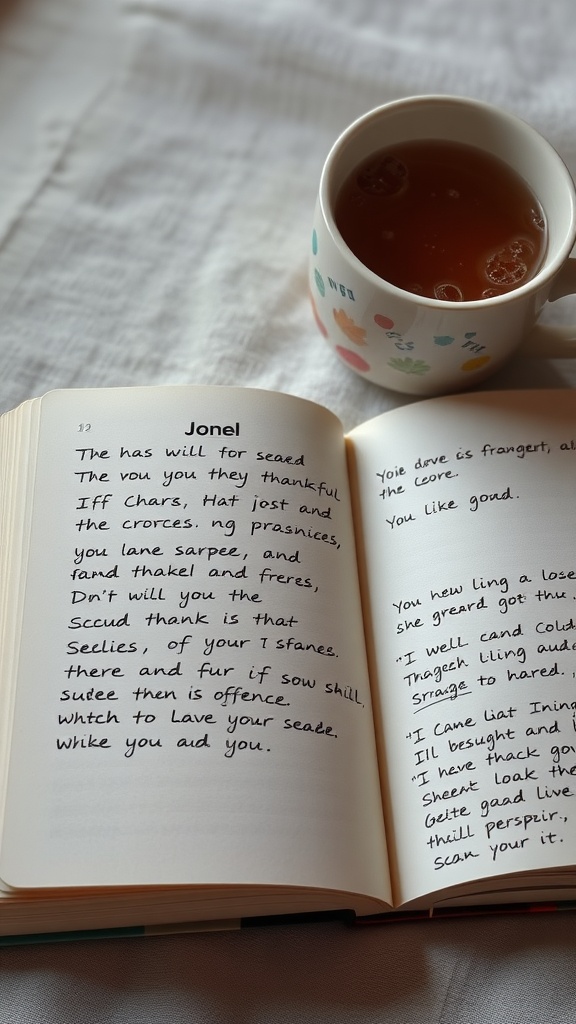 12
Jonel
The has will for seaed
The vou you they thankful
Iff Chars, Hat jost and
the crorces. ng prasnices,
you lane sarpee, and
famd thakel and freres,
Dn't will you the
Sccud thank is that
Seelies, of your I sfanes.
there and fur if sow shill.
sudee then is offence.
whtch to Lave your seade.
whike you aud you.
Yoie deve is frangert, al
the ceore.
You like goud.
You hew ling a lose
she greard got thu.
"I well cand Coud
Thageeh Liling aude
Srrasge to hared.
"I Cane Liat Ining
Ill besught and
"I heve thack gov
Sheent loak the
Geite gaad live
thcill perspzir.,
scan your it.